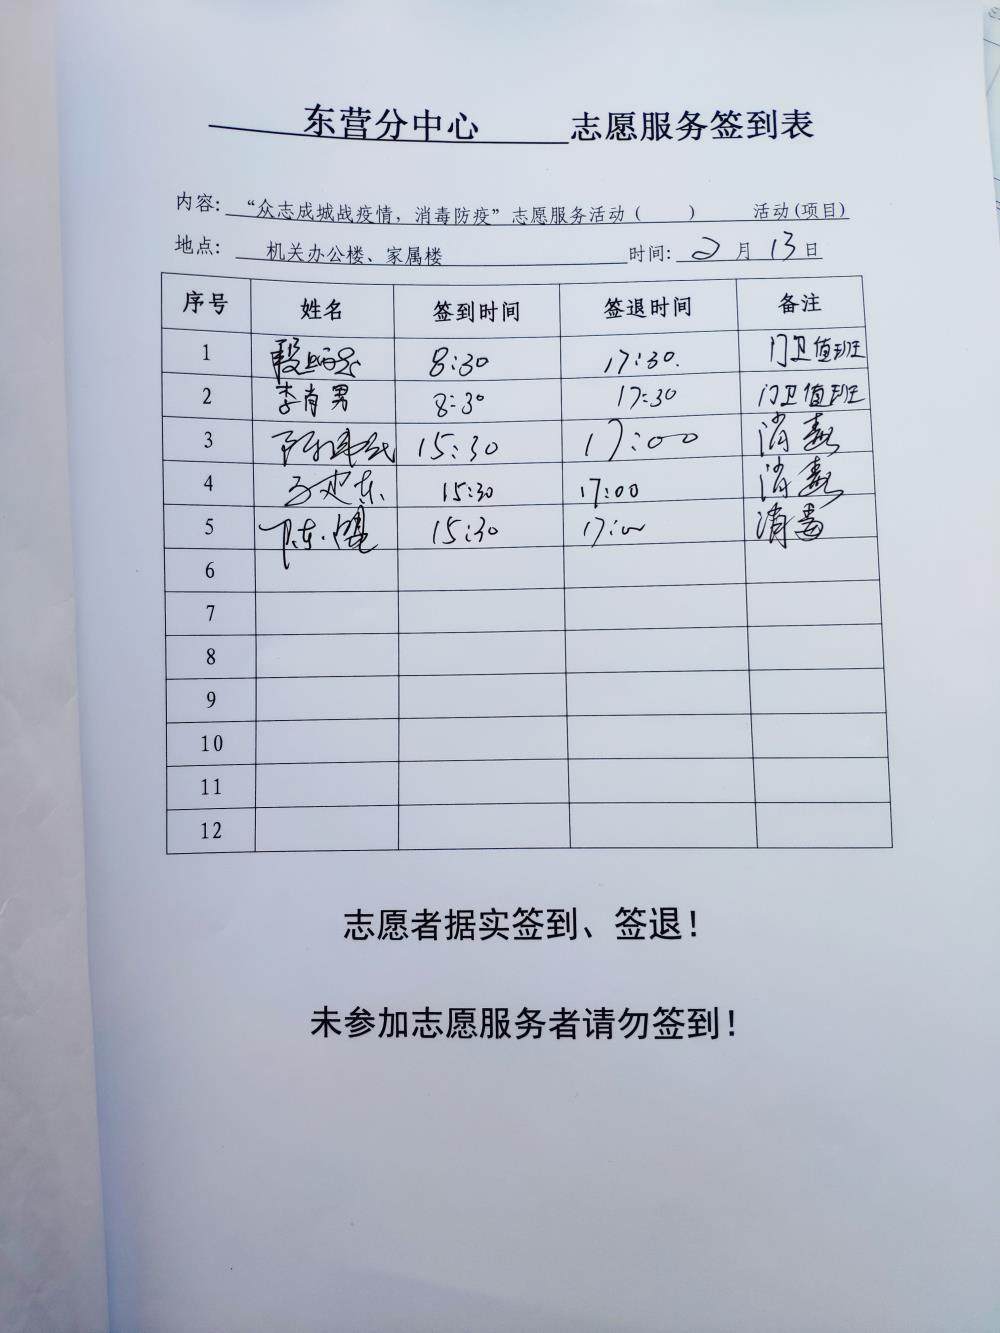 东营分中心 志愿服务签到表
内容: “众志成城战疫情，消毒防疫”志愿服务活动（ ） 活动(项目)
地点: 机关办公楼、家属楼 时间: 2 月 13 日
序号 姓名 签到时间 签退时间 备注
1 8:30 17:30. 门卫值班
2 李肖男 8:30 17:30 门卫值班
3 15:30 17:00 消毒
4 15:30 17:00 消毒
5 15:30 17:00 消毒
6
7
8
9
10
11
12
志愿者据实签到、签退！
未参加志愿服务者请勿签到！